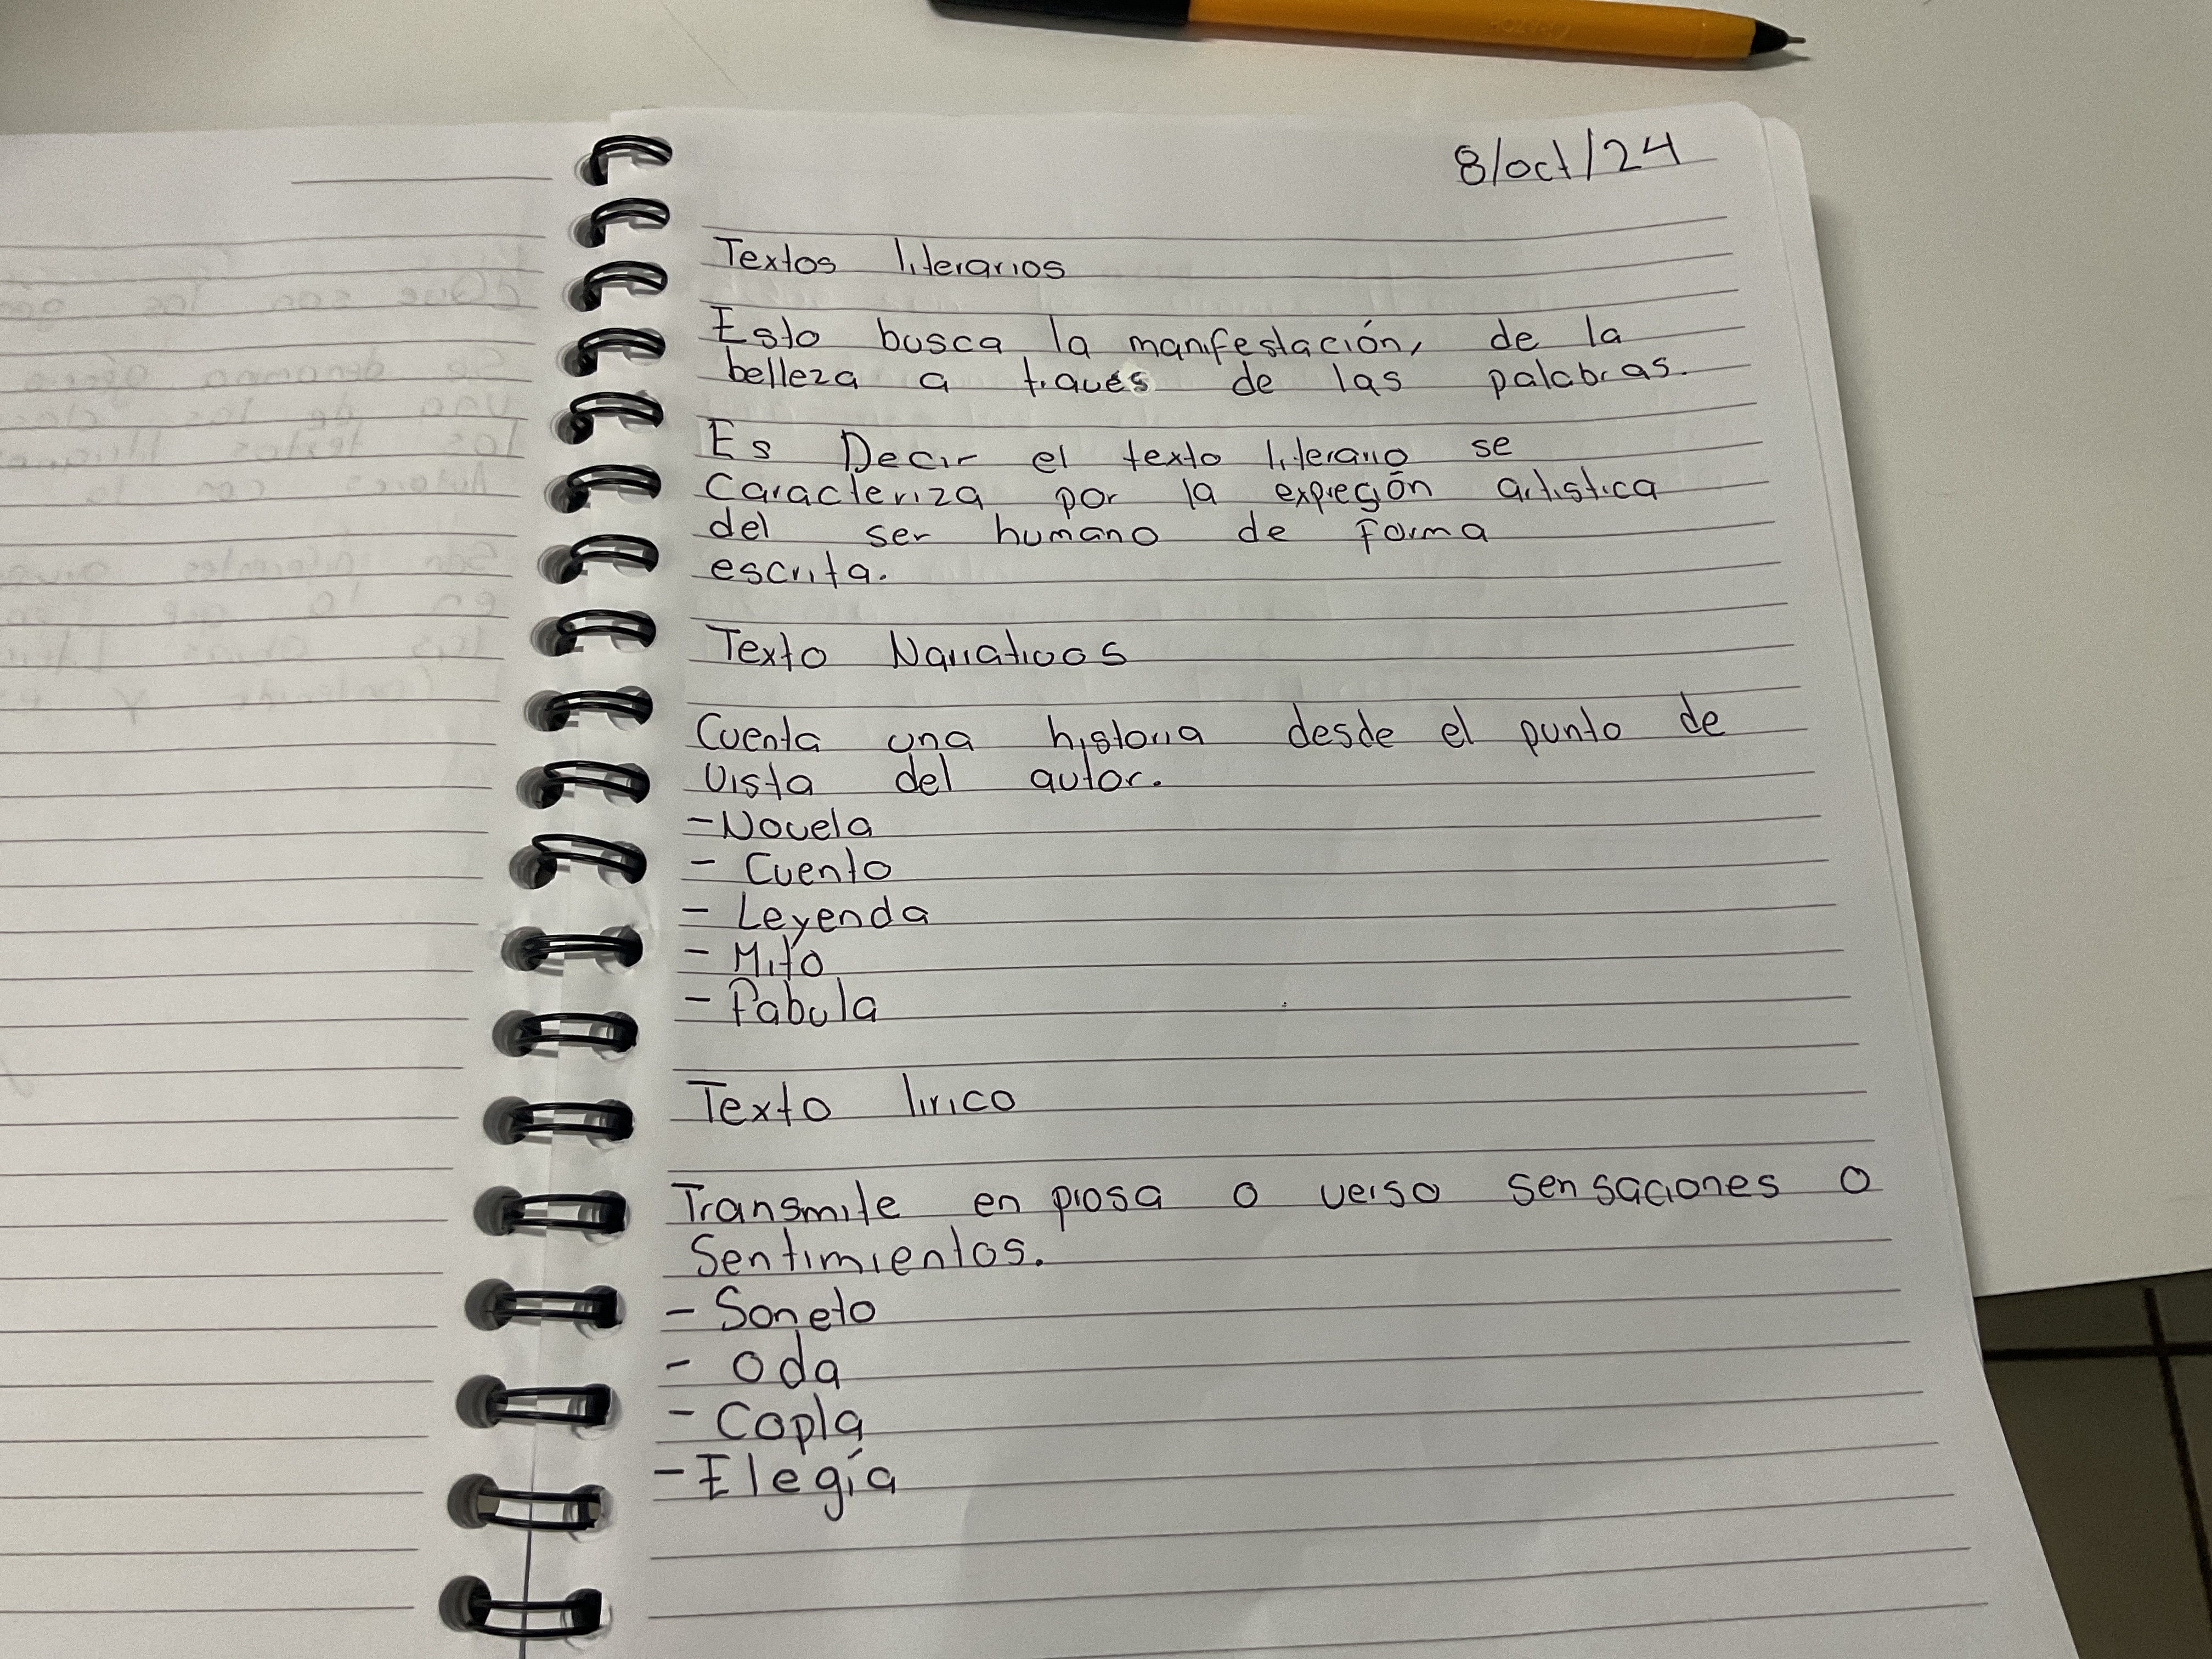 8/oct/24
Textos literarios
Esto busca la manifestación, de la
belleza a través de las palabras.
Es Decir el texto literario se
Caracteriza por la expreción artistica
del ser humano de forma
escrita.
Texto Narrativos
Cuenta una historia desde el punto de
vista del autor.
-Novela
- Cuento
- Leyenda
- Mito
- Fabula
Texto lirico
Transmite en prosa o verso sensaciones o
Sentimientos.
- Soneto
- Oda
- Copla
- Elegía